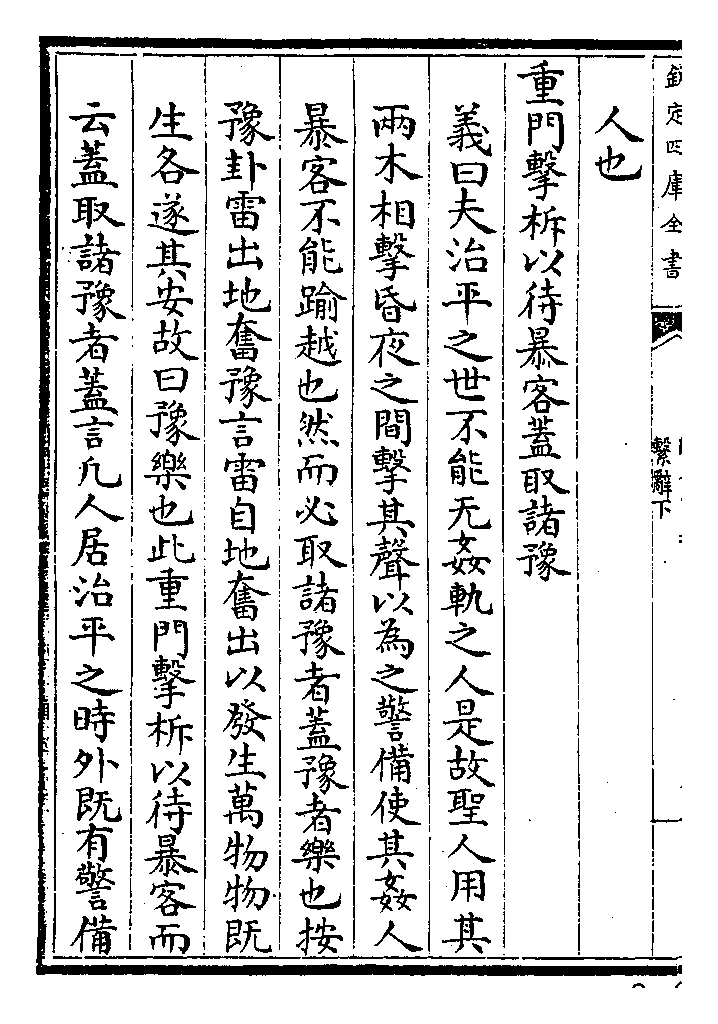 欽定四庫全書
繫辭下
人也
重門擊柝以待暴客蓋取諸豫
義曰夫治平之世不能无姦軌之人是故聖人用其
兩木相擊昏夜之間擊其聲以為之警備使其姦人
暴客不能踰越也然而必取諸豫者蓋豫者樂也按
豫卦雷出地奮豫言雷自地奮出以發生萬物物既
生各遂其安故曰豫樂也此重門擊柝以待暴客而
云蓋取諸豫者蓋言凡人居治平之時外既有警備